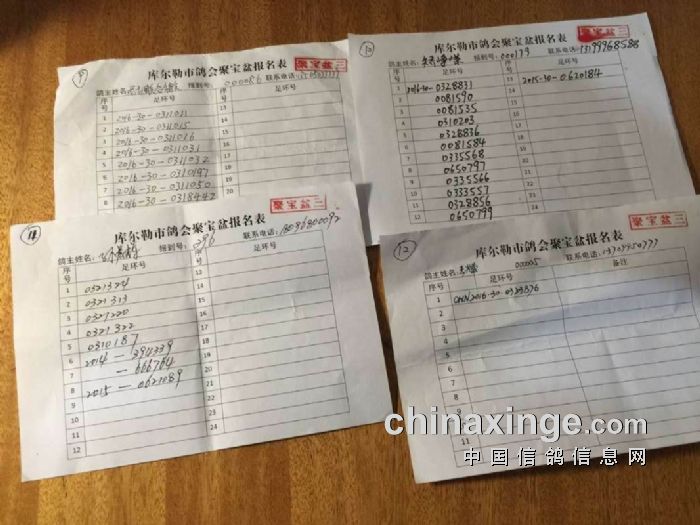 9
库尔勒市鸽会聚宝盆报名表
聚宝盆三
鸽主姓名: 报到号: 000086 联系电话:
序号 足环号
1 2016-30-0311011 13
2 2016-30-0311015 14
3 2016-30-0311016 15
4 2016-30-0311031 16
5 2016-30-0311032 17
6 2016-30-0310197 18
7 2016-30-0311050 19
8 2016-30-0318442 20
10
库尔勒市鸽会聚宝盆报名表
聚宝盆三
鸽主姓名: 报到号: 000179 联系电话: 13199968588
序号 足环号 序号 足环号
1 2016-30-0328831 13 2015-30-0620184
2 0081590 14
3 0081535 15
4 0310203 16
5 0328836 17
6 0081584 18
7 0335568 19
8 0650797 20
9 0335566 21
10 0333557 22
11 0328856 23
12 0650799 24
11
库尔勒市鸽会聚宝盆报名表
聚宝盆三
鸽主姓名: 报到号: 联系电话: 18096800092
序号 足环号 序号 足环号
1 0321324 13
2 0321313 14
3 0321220 15
4 0321322 16
5 0310187 17
6 2014-394339 18
7 -666764 19
8 2015-0621089 20
9 21
10 22
11 23
12 24
12
库尔勒市鸽会聚宝盆报名表
聚宝盆三
鸽主姓名: 000005 联系电话:
序号 足环号 备注
1 CHN2016-30-0323876
2
3
4
5
6
7
8
9
11
chinaxinge.com
中国信鸽信息网